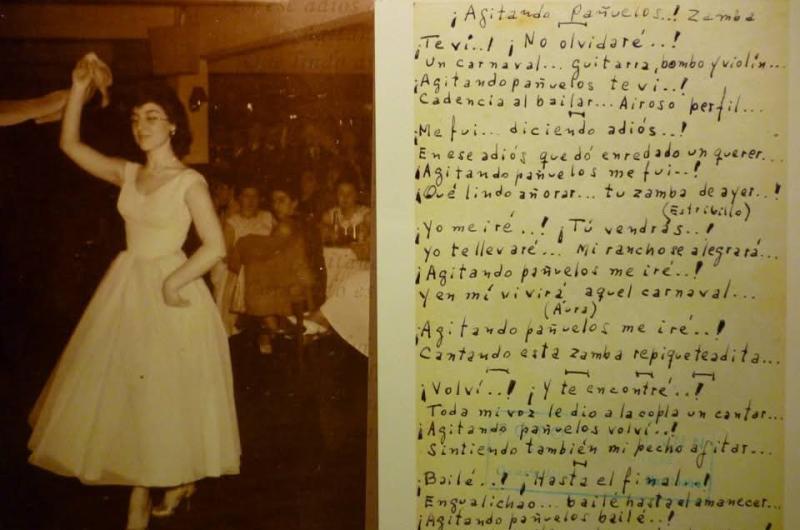 ¡Agitando pañuelos..! Zamba
¡Te ví..! ¡No olvidaré...!
Un carnaval... guitarra, bombo y violín...
¡Agitando pañuelos te vi..!
Cadencia al bailar... Airoso perfil...
¡Me fui... diciendo adiós..!
En ese adiós quedó enredado un querer...
¡Agitando pañuelos me fui..!
¡Qué lindo añorar... tu zamba de ayer..!
(Estribillo)
¡Yo me iré..! ¡Tú vendrás..!
Yo te llevaré... Mi rancho se alegrará...
¡Agitando pañuelos me iré..!
y en mí vivirá aquel carnaval...
(Aura)
¡Agitando pañuelos me iré..!
Cantando esta zamba repiqueteadita...
¡Volví..! ¡Y te encontré..!
Toda mi voz le dio a la copla un cantar...
¡Agitando pañuelos volví..!
Sintiendo también mi pecho agitar...
¡Bailé..! ¡Hasta el final..!
Engualichao... bailé hasta el amanecer...
¡Agitando pañuelos bailé..!